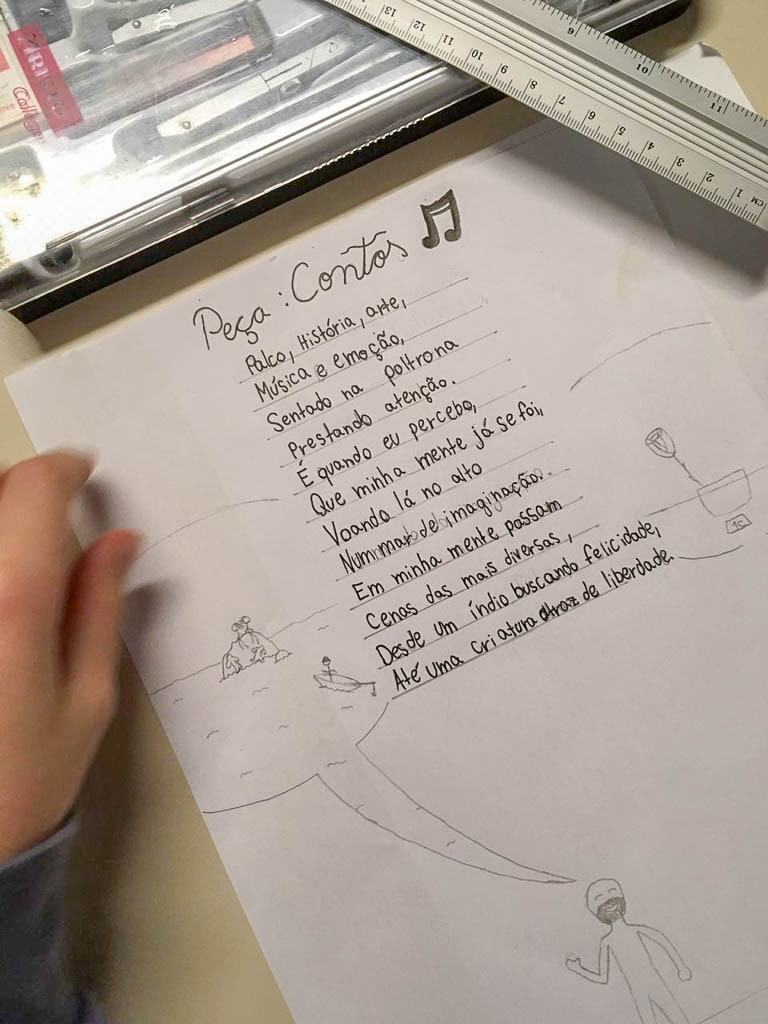 Peça: Contos
Palco, História, arte,
Música e emoção,
Sentado na poltrona
Prestando atenção.
É quando eu percebo,
Que minha mente já se foi,
Voando lá no alto
Num mar de imaginação.
Em minha mente passam
Cenas das mais diversas,
Desde um índio buscando felicidade,
Até uma criatura atraz de liberdade.
1c
13 12 11 10 9 8 7 6 5 4 3 2 1 CM
9 10 11